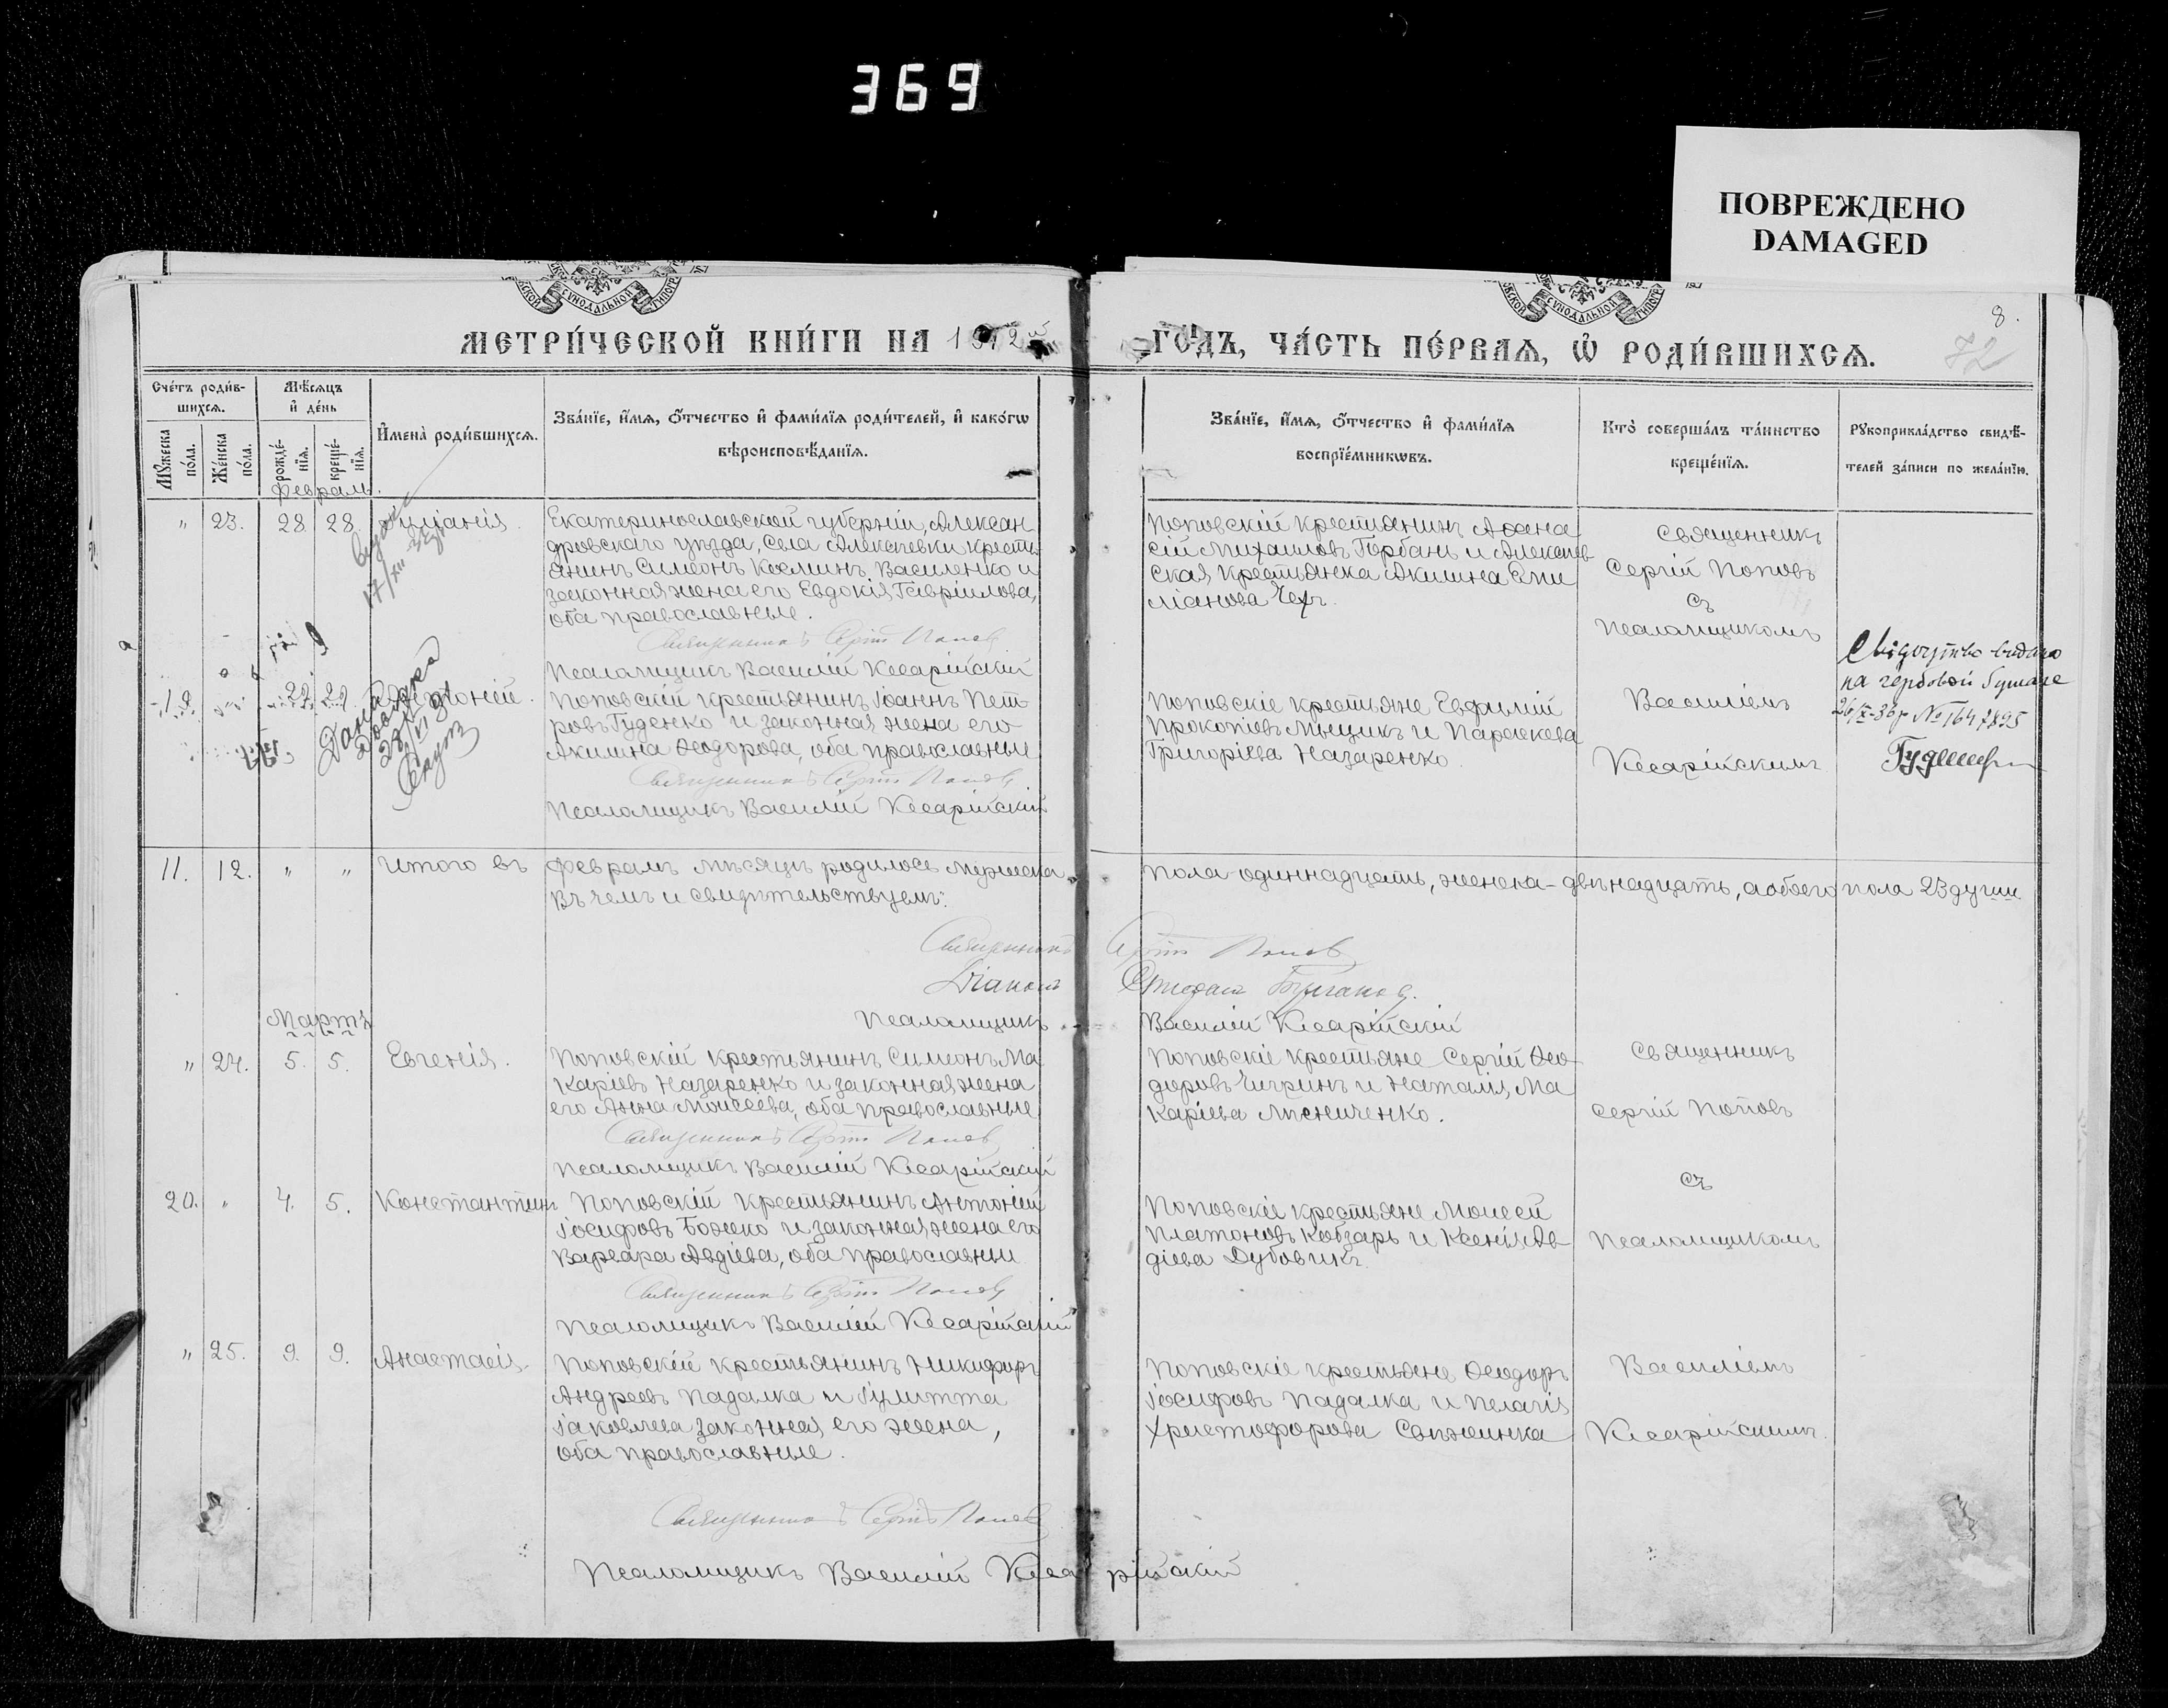 369
ПОВРЕЖДЕНО
DAMAGED
СѴНОДАЛЬНОЙ
СѴНОДАЛЬНОЙ
8.
72
МЕТРИ́ЧЕСКОЙ КНИ́ГИ НА 1912
ГО́ДЪ, ЧА́СТЬ ПЕ́РВАЯ, Ѡ РОДИ́ВШИХСЯ.
Сче́тъ роди́в-
шихся.
Мѣ́сяцъ
и҆ де́нь
Мꙋ́жеска по́ла.
Же́нска по́ла.
рожде́-
нїя.
креще́-
нїя.
И҆мена̀ роди́вшихся.
Зва́нїе, и҆́мя, ѻ҆́тчество и҆ фами́лїя роди́телей, и҆ како́гѡ
вѣроисповѣ́данїя.
Зва́нїе, и҆́мя, ѻ҆́тчество и҆ фами́лїя
воспрїе́мникѡвъ.
Кто̀ соверша́лъ та́инство
креще́нїя.
Рꙋкоприкла́дство свидѣ́-
телей за́писи по жела́нїю.
Февраль.
" 23. 28 28. Іуліанія.
Екатеринославской губерніи, Алексан
дровскаго уѣзда, села Алексѣевки кресть
янинъ Симеонъ Косминъ Василенко и
законная жена его Евдокія Гавріилова,
оба православные.
Священникъ Сергій Поповъ
Псаломщикъ Василій Кесарійскій
Поповскій крестьянинъ Аѳана
сій Михаиловъ Горбань и Алексѣев
ская крестьянка Акилина Еми
ліанова Чехъ.
Священникъ
Сергій Поповъ
съ
псаломщикомъ
Василіемъ
Кесарійскимъ
17/XII
19. 22. 29.
Поповскій крестьянинъ Іоаннъ Пет
ровъ Гуденко и законная жена его
Акилина Ѳеодорова, оба православные
Священникъ Сергій Поповъ
Псаломщикъ Василій Кесарійскій
Поповскіе крестьяне Евфимій
Прокопіевъ Мыцикъ и Параскева
Григоріева Назаренко.
Свідоцтво видано
на гербовой бумаге
26/X-36р №1647895
11. 12. " " Итого въ Февралѣ мѣсяцѣ родилось мужеска
пола - одиннадцать, женска - двѣнадцать, а обоего пола 23 души.
Въ чемъ и свидѣтельствуемъ:
Священникъ Сергій Поповъ
Діаконъ
Псаломщикъ Василій Кесарійскій
Мартъ
" 24. 5. 5. Евгенія.
Поповскій крестьянинъ Симеонъ Ма
каріевъ Назаренко и законная жена
его Анна Моисеева, оба православные
Священникъ Сергій Поповъ
Псаломщикъ Василій Кесарійскій
Поповскіе крестьяне Сергій Ѳео
доровъ Чигринъ и Наталія Ма
каріева Лисниченко.
Священникъ
Сергій Поповъ
съ
псаломщикомъ
Василіемъ
Кесарійскимъ.
20. " 4. 5. Константинъ
Поповскій крестьянинъ Антоній
Іосифовъ Божко и законная жена его
Варвара Авдіева, оба православны
Священникъ Сергій Поповъ
Псаломщикъ Василій Кесарійскій
Поповскіе крестьяне Моисей
Платоновъ Кобзарь и Ксенія Ав-
діева Дубовикъ.
" 25. 9. 9. Анастасія.
Поповскій крестьянинъ Никифоръ
Андреевъ Падалка и Іулитта
Іаковлева законная его жена,
оба православные.
Священникъ Сергій Поповъ
Псаломщикъ Василій Кесарійскій
Поповскіе крестьяне Ѳеодоръ
Іосифовъ Падалка и Пелагія
Христофорова Свѣжинка